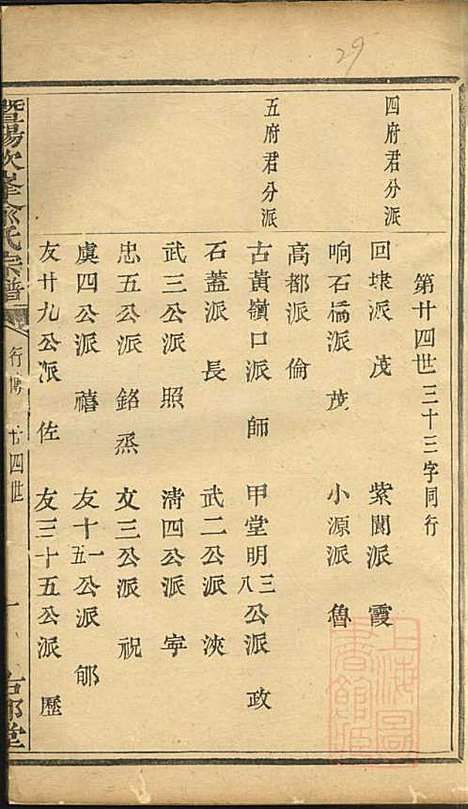 29
第廿四世三十三字同行
四府君分派
回埭派茂 紫閬派霞
响石橋派茂 小源派魯
五府君分派
高都派倫
古黃嶺口派師 甲堂明三八公派政
石蓋派長 武二公派浹
武三公派照 清四公派寕
忠五公派銘烝 文三公派祝
虞四公派禧 友十一五公派郇
友廿九公派佐 友三十五公派歷
暨陽次峯俞氏宗譜
行傳 廿四世
一
右鄰堂
上海圖書館藏